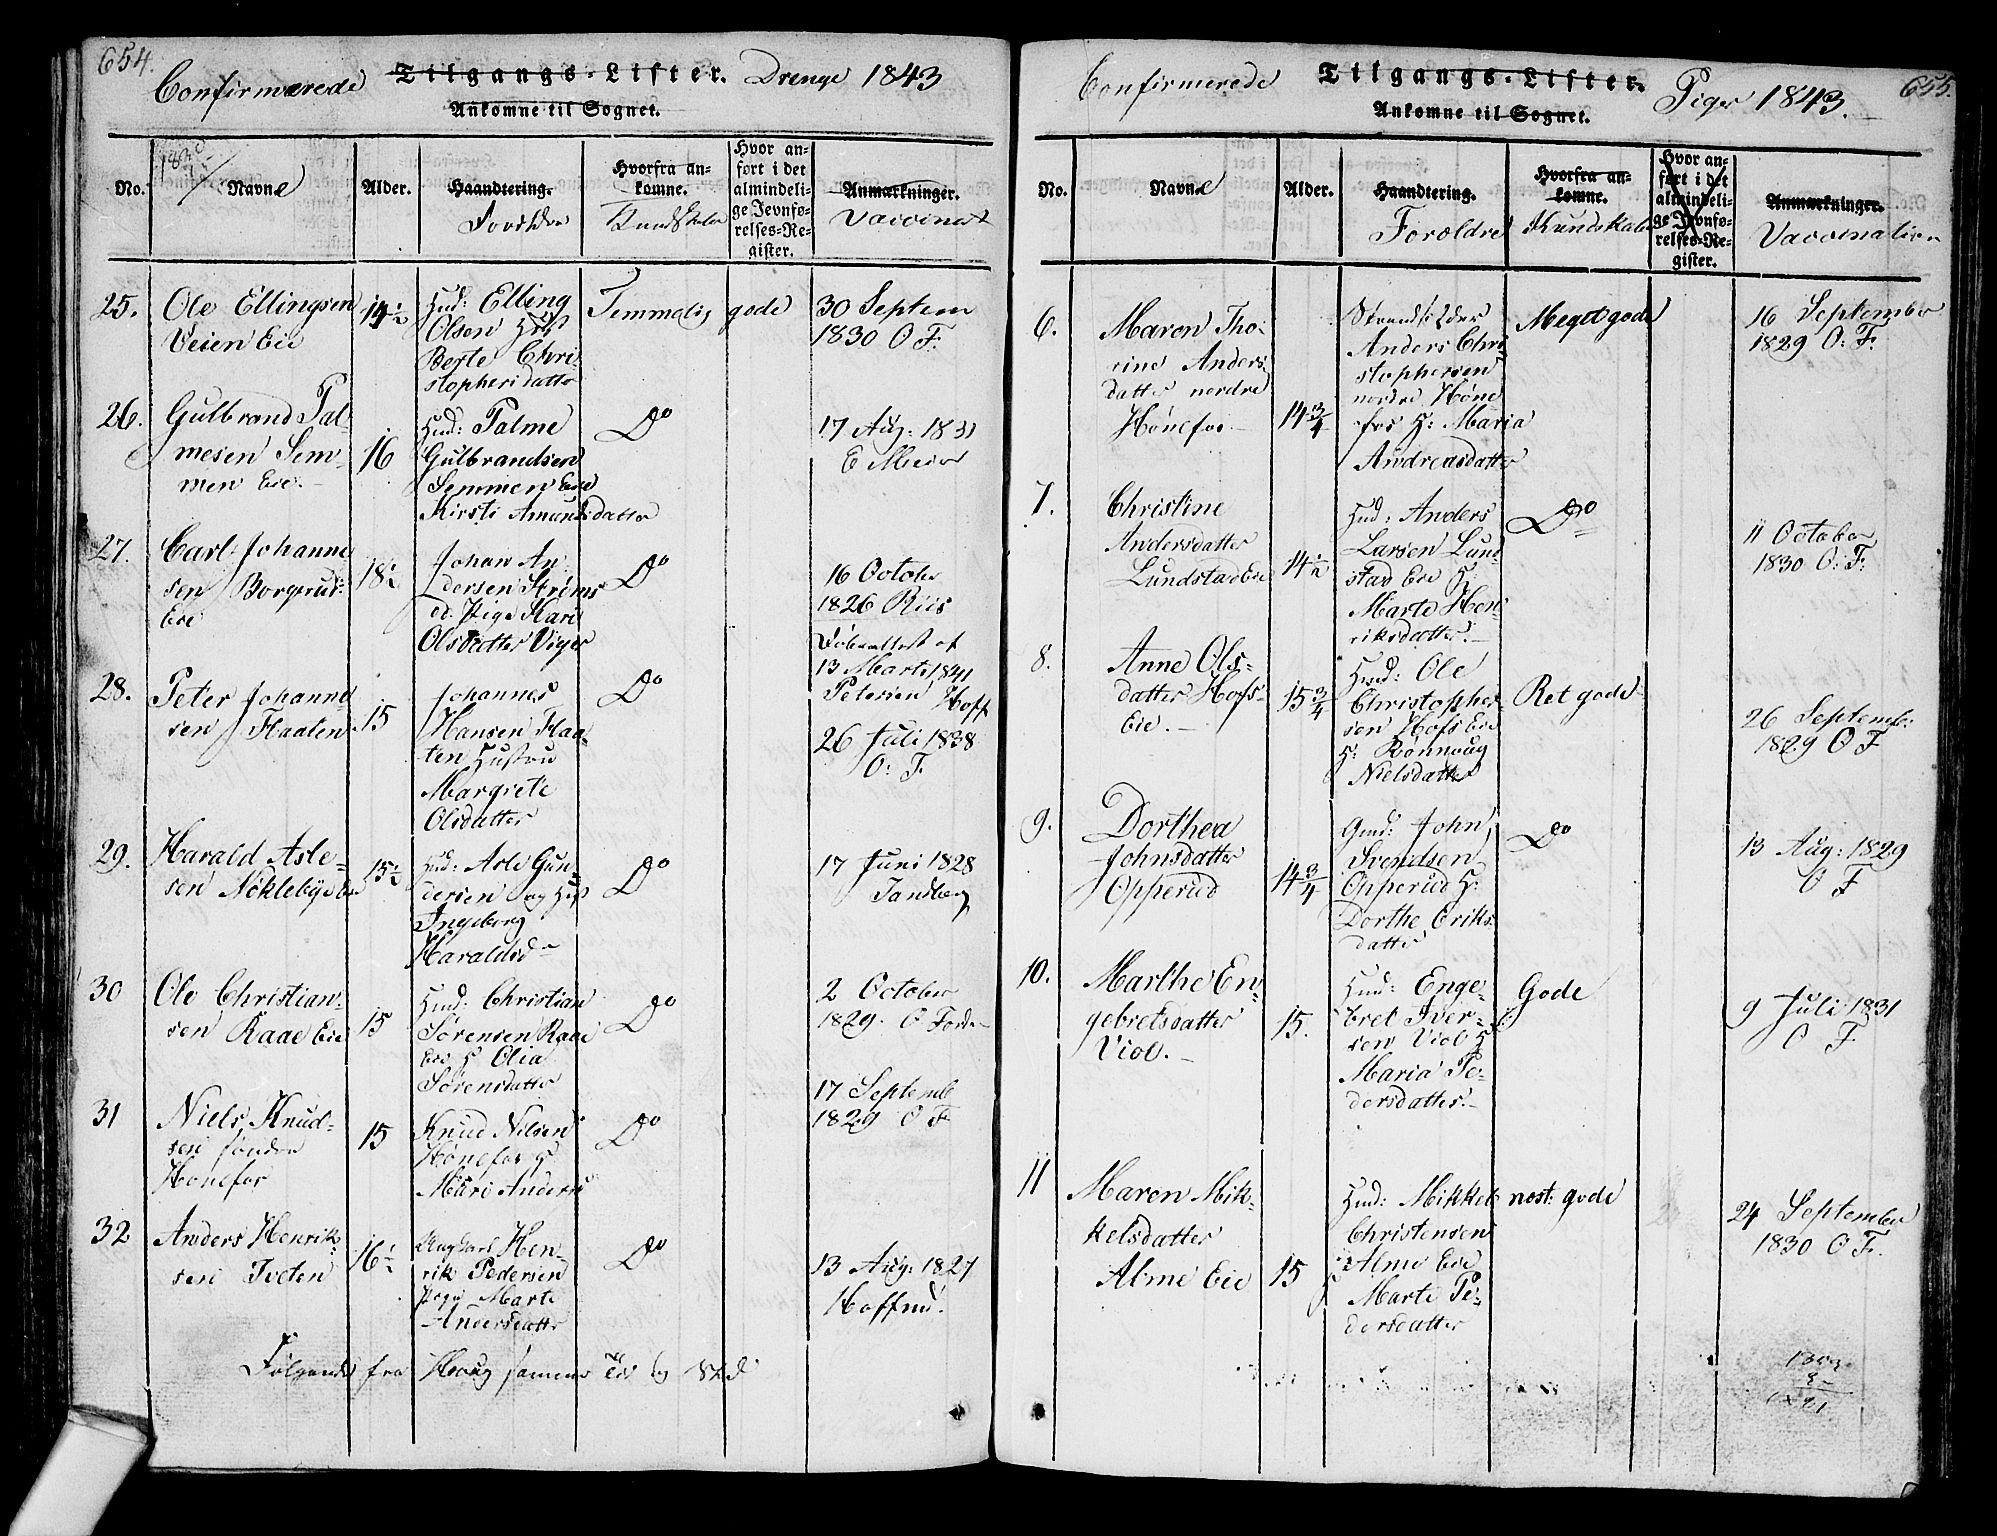 654.
Confirmerede Tilgangs-Lister. Drenge 1843
Ankomne til Sognet.
No.
Navne
Alder.
Haandtering.
Forældre
Hvorfra an-
komne.
Kundskaber
Hvor an-
ført i det
almindeli-
ge Jevnfø-
relses-Re-
gister.
Anmærkninger.
Vaccinert
25.
Ole Ellingsen
Veien Eie
14½
Hud: Elling
Olsen Hust
Berte Chri-
stophersdatter
Temmelig gode
30 Septem
1830 O F.
26.
Gulbrand Pal-
mesen Sem-
men Eie.
16
Hud: Palme
Gulbrandsen
Semmen Eie
Kirsti Amundsdatter
Do
17 Aug: 1831
E Meier
27.
Carl Johanne
sen Borgerud-
Eie
18½
Johan An-
dersen Strøms-
Pige Kari
Olsdatter Viger
Do
16 October
1826 Riis
Døbeattest af
13 Marts 1841
Petersen Hoff
28.
Peter Johanne
sen Flaaten
15
Johannes
Hansen Flaa-
ten Hustru
Margrete
Olsdatter
Do
26 Juli 1838
O: F.
29.
Harald Asle-
sen Nøklebye Eie
15½
Hud: Asle Gun-
dersen og Hust
Ingeborg
Haraldsd
Do
17 Juni 1828
Tandberg
30
Ole Christian-
sen Raae Eie
15
Hud: Christian
Sørensen Raae
Eie H Olia
Sørensdatter
Do
2 October
1829. O
31
Niels Knud-
sen søndre
Hønefos
15
Knud Nilsen
Hønefos H
Mari Anders
Do
17 Septemb
1829 O F
32
Anders Henrik-
sen Tveten
16½
Ungkarl Hen-
rik Pedersen
Pige Marte
Andersdatter
Do
13 Aug: 1827
Følgende fra Houg samme Tid og Sted
655.
Confirmerede Tilgangs-Lister. Piger 1843.
Ankomne til Sognet.
No.
Navne
Alder.
Haandtering.
Forældre
Hvorfra an-
komne.
Kundskaber
Hvor an-
ført i det
almindeli-
ge Jevnfø-
relses-Re-
gister.
Anmærkninger.
Vaccination
6.
Maren Tho-
rine Anders-
datter nordre
Hønefos
14¾
Strandsidder
Anders Chri-
stophersen
nordre Høne
fos H: Maria
Andreasdatter
Meget gode
16 September
1829 O: F.
7.
Christine
Andersdatter
Lundstad Eie
14½
Hud: Anders
Larsen Lund
stad Eie H:
Marte Hen
riksdatter.
Do
11 October
1830 O: F.
8.
Anne Ols-
datter Hofs-
Eie.
15¾
Hud: Ole
Christopher
sen Hofs Eie
H: Rønnoug
Nielsdatter
Ret gode
26 Septemb:
1829 O F
9.
Dorthea
Johnsdatter
Opperud
14¾
Gmd: John
Svendsen
Opperud H:
Dorthe Eriks
datter
Do
13 Aug: 1829
O F
10.
Marthe En-
gebretsdatter
Viol.
15.
Hud: Enge-
bret Iver-
sen Viol H
Maria Pe-
dersdatter.
Gode
9 Juli 1831
O F.
11
Maren Mik-
kelsdatter
Alme Eie
15
Hud: Mikkel
Christensen
Alme Eie
Marte Pe-
dersdatter
næst: gode
24 September
1830 O F.